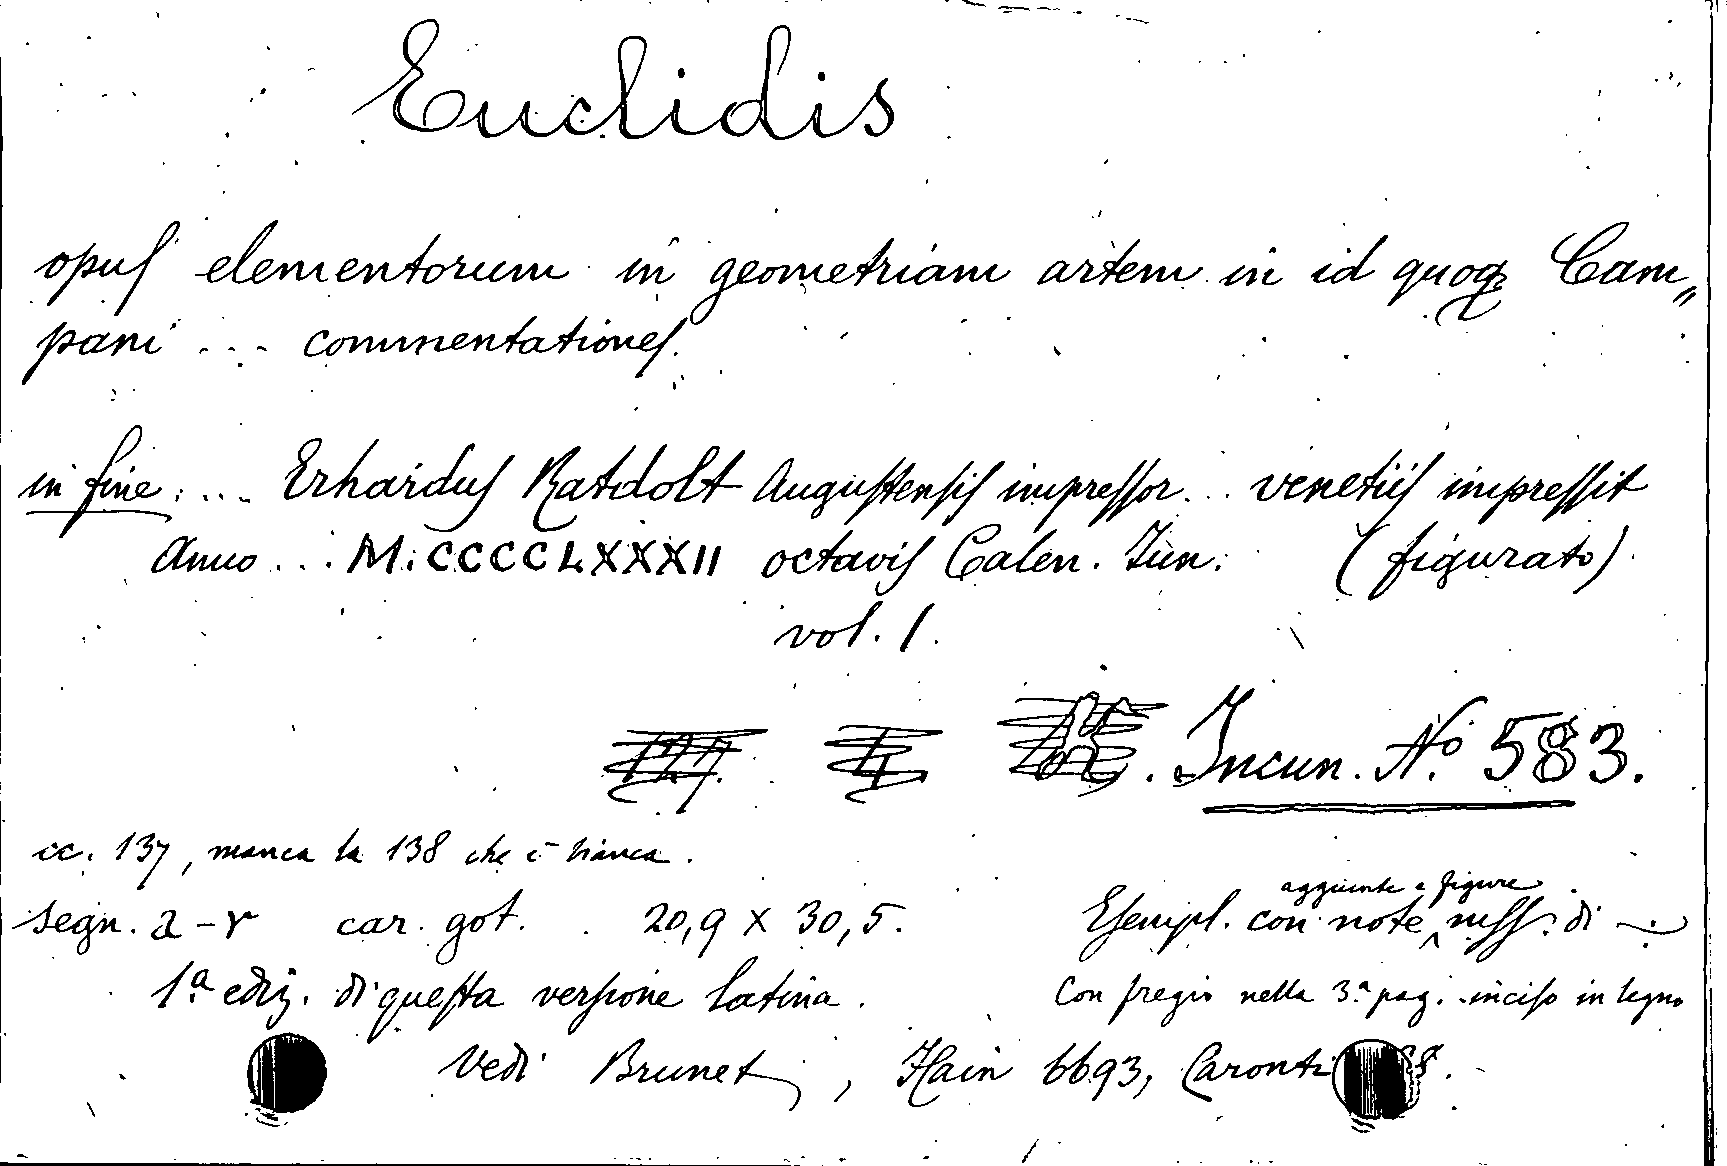 Euclidis
opuſ elementorum in geometriam artem in id quoqꝫ Cam„
pani ... commentationeſ.
in fine: ... Erharduſ Ratdolt Auguſtenſiſ impreſſor ... venetiiſ impreſſit
Anno ... M.CCCCLXXXII octaviſ Calen. Jun: (figurato)
vol. 1.
Incun. No. 583.
cc. 137, manca la 138 che è bianca.
aggiunte e figure
segn. a-r car. got. 20,9 X 30,5. Eſempl. con note mſſ. di
1.a ediz. di queſta verſione latina. Con fregio nella 3.a pag. inciſo in legno
Vedi Brunet, Hain 6693, Caronti